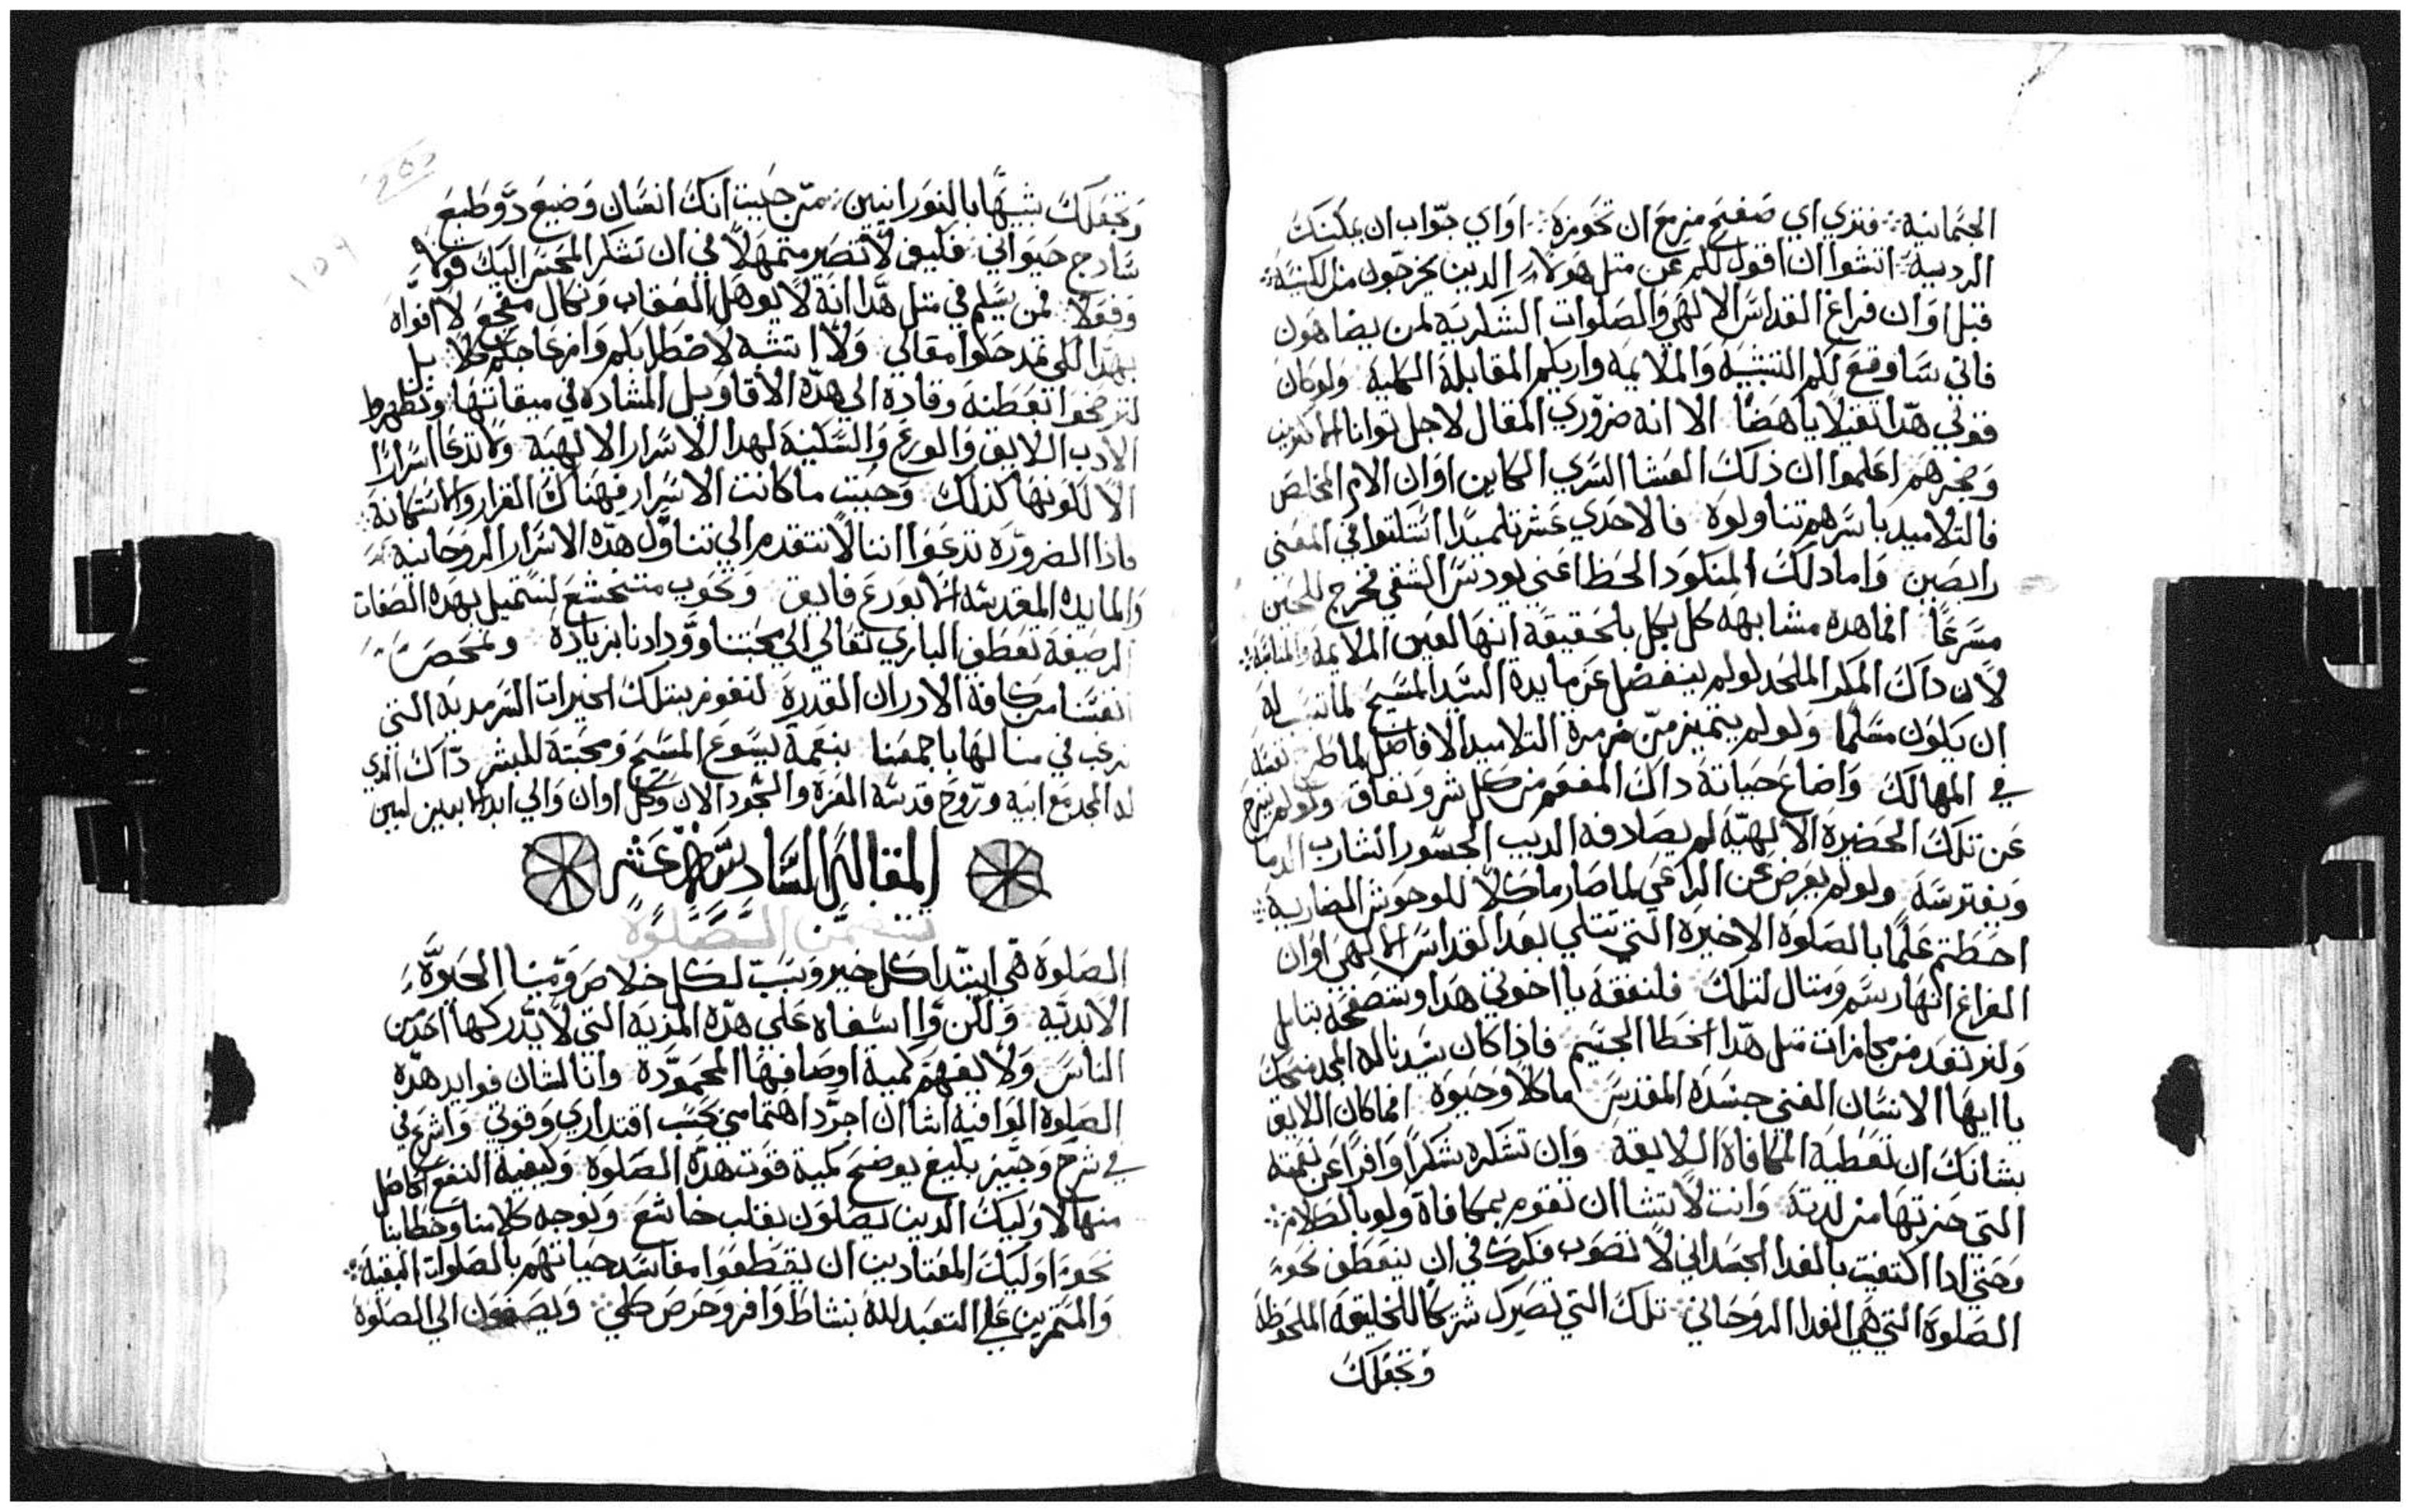 الجثمانية فتري اي صفيح منزمع ان تحوزه اواي جواب ان يمكنك
الرديية اتشوا ان اقول لكم عن مثل هولاء الدين يخرجون من الكنيسة
قبل اوان فراغ القداس الالهي والصلوات الشكرية لمن يضاهون
فاني ساوقع لكم التشبيه والملايمه واريكم المقابلة الكلية ولوكان
قولي هدا تقيلا باهضا الا انه ضروري المقال لاجل توانا
وضجرهم اعلموا ان ذلك العشا السري الكاين اوان الالام المخلص
فالتلاميد باسرهم تناولوه فالاحدي عشر تلميدا اتتلتوا في المعني
رابصين واما دلك المنكود الحظ اعني يودس الشقي فخرج للحين
مسرعا افما هده مشابهة كل بكل بالحقيقة انها لعين الملايمة
لان داك المكر الملحد لولم ينفصل عن مايدة السيد المسيح لما تسب له
ان يكون مسلما ولو لم يتميز من زمرة التلاميد الافاضل لما طرح نفسه
في المهالك واضاع حياته داك المفعم من كل شر ونفاق ولو لم ينزح
عن تلك الحضيرة الالهية لم يصادفه الديب الجسور الشارب الدما
ويفترسه ولو لم يعرض عن الراعي لما صار ماكلا للوحوش الضارية
احطتم علما بالصلوة الاخيرة التي تتلي بعد القداس الالهي اوان
الفراغ انها رسم ومتال لتلك فلنفقه يا اخوتي هدا ونتصفحه بتابل
ولنرتعد من مجازات مثل هدا الخطا الجسيم فاذا كان سيدنا له المجد منحك
يا ايها الانسان الغني جسده المقدس ماكلا وحيوة افما كان اللايق
بشانك ان تعطيه المكافاة اللايقة وان تشكره شكرا وافرا عن نعمته
التي حزتها من لدنه وانت لا تشا ان تقوم بمكافاة ولو بالكلام
وحتي ادا اكتفيت بالغدا الجسداني لا تصوب فكرك في ان ينعطف نحوه
الصلوة التي هي الغدا الروحاني تلك التي تصيرك شريكا للخليقة الملحوظة
وتجعلك
وتجعلك شبيها بالنورانيين من حيت انك انسان وضيع دو طبع
سادج حيواني فكيف لا تصير متمهلا في ان تشكر المحسن اليك قولا
وفعلا فمن يسلم في مثل هدا انه لا يوهل العقاب ونكال مفجع لا افواه
بهدا لكي تمدحوا مقالي ولا اتشبه لاضطرابكم وانزعاجكم كلا بل
لترضخوا تعطنه وقادة الي هده الاقاويل المشادة في ميقاتها وتظهروا
الادب اللايق والورع والسكينة لهدا الاسرار الالهية ولا تدعا اسرارا
الا لكونها كذلك وحيت ما كانت الاسرار فهناك القرار والاستكانة
فاذا الضرورة تدعوا اننا لا نتقدم الي تناول هده الاسرار الروحانية
والمايده المقدسة الا بورع فايق ونحوب متخشع لنستميل بهده الصفات
الرصيفة تعطف الباري تعالي الي محبتنا وودادنا بزيادة ولنمحص
انفسنا من كافة الادران المقدرة لنفوز بتلك الخيرات السرمدية التي
نرغب في منالها باجمعنا بنعمة يسوع المسيح ومحبته للبشر داك الذي
له المجد مع ابيه وروح قدسه المعزة والسجود الان وكل اوان والي ابد الابدين امين
المقالة السادسة عشر
تتضمن الصلوة
الصلوة هي ابتدا كل خير وسبب لكل خلاص ومينا الحيوة
الابدية ولكن وااسفاه علي هده المزية التي لا يدركها احد من
الناس ولا يفهم كمية اوصافها المحمودة وانا لشان فوايد هده
الصلوة الوافية اشا ان اجرد اهتمامي بحسب اقتداري وقوتي واشرع في
في شرح وجيز بليغ يوضح كمية قوت هده الصلوة وكيفية النفع الحاصل
منها لاوليك الدين يصلون بقلب خاشع ونوجه كلامنا وخطابنا
نحو اوليك المعتادين ان يقطعوا مفاسد حياتهم بالصلوات النقية
والمتمرين علي التعبد لله بنشاط وافر وحرص كلي ويصغون الي الصلوة